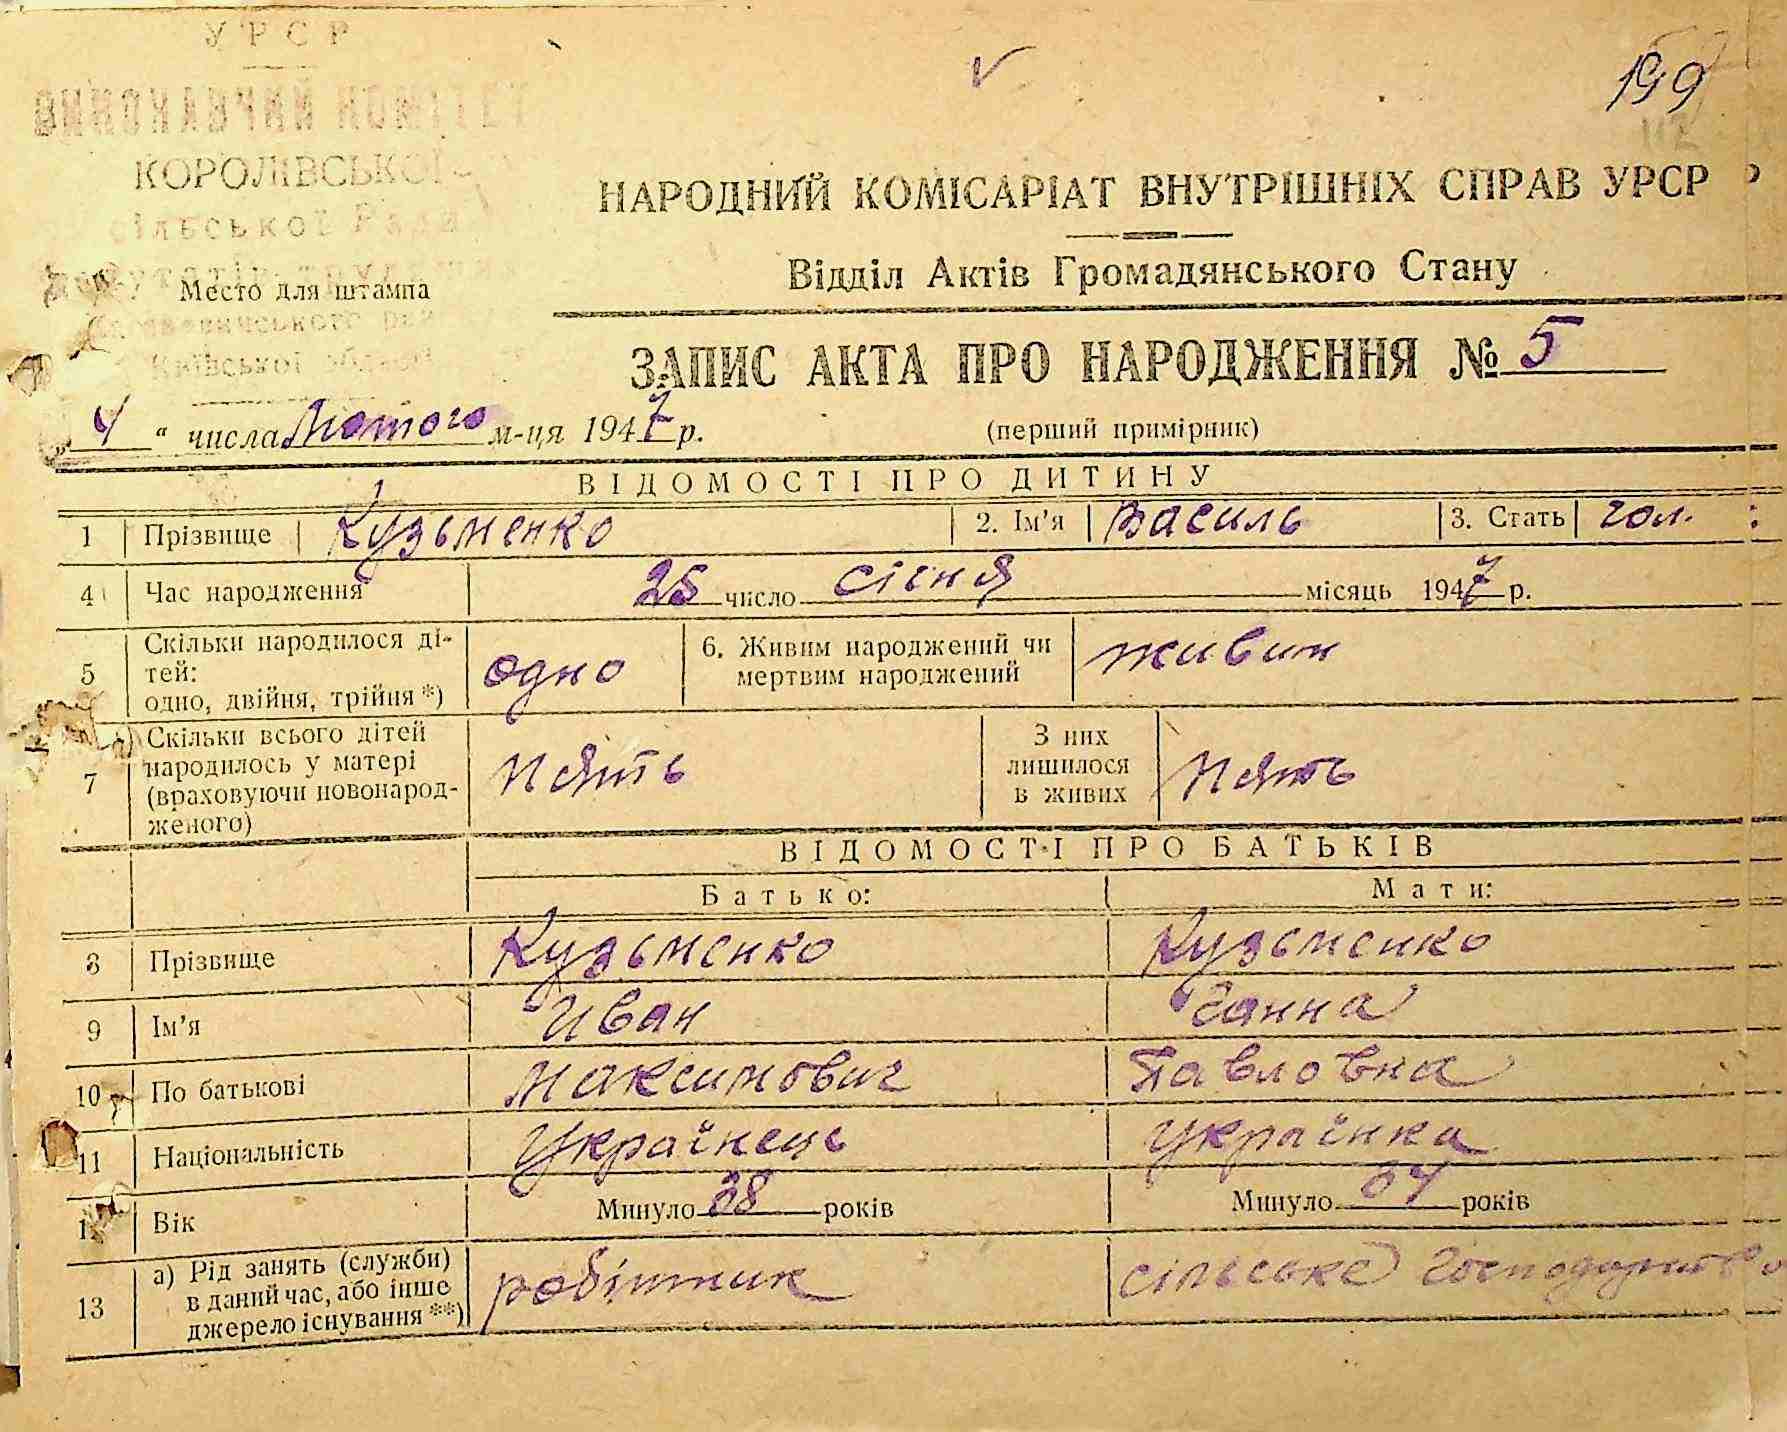 УРСР
ВИКОНАВЧИЙ КОМІТЕТ
КОРОЛІВСЬКОЇ
сільської Ради
Депутатів трудящих
Место для штампа
району
Київської області
199
112
НАРОДНИЙ КОМІСАРІАТ ВНУТРІШНІХ СПРАВ УРСР
Відділ Актів Громадянського Стану
ЗАПИС АКТА ПРО НАРОДЖЕННЯ № 5
„4“ числа Лютого м-ця 1947 р. (перший примірник)
ВІДОМОСТІ ПРО ДИТИНУ
1 Прізвище Кузьменко 2. Ім'я Василь 3. Стать чол.
4 Час народження 25 число січня місяць 1947 р.
5 Скільки народилося ді-
тей:
одно, двійня, трійня *) одно 6. Живим народжений чи
мертвим народжений живим
7 Скільки всього дітей
народилось у матері
(враховуючи новонарод-
женого) пять З них
лишилося
в живих пять
ВІДОМОСТІ ПРО БАТЬКІВ
Батько: Мати:
8 Прізвище Кузьменко Кузьменко
9 Ім'я Иван Ганна
10 По батькові Максимович Павловна
11 Національність Українець Українка
12 Вік Минуло 38 років Минуло 34 років
13 а) Рід занять (служби)
в даний час, або інше
джерело існування **) робітник сільське господарство